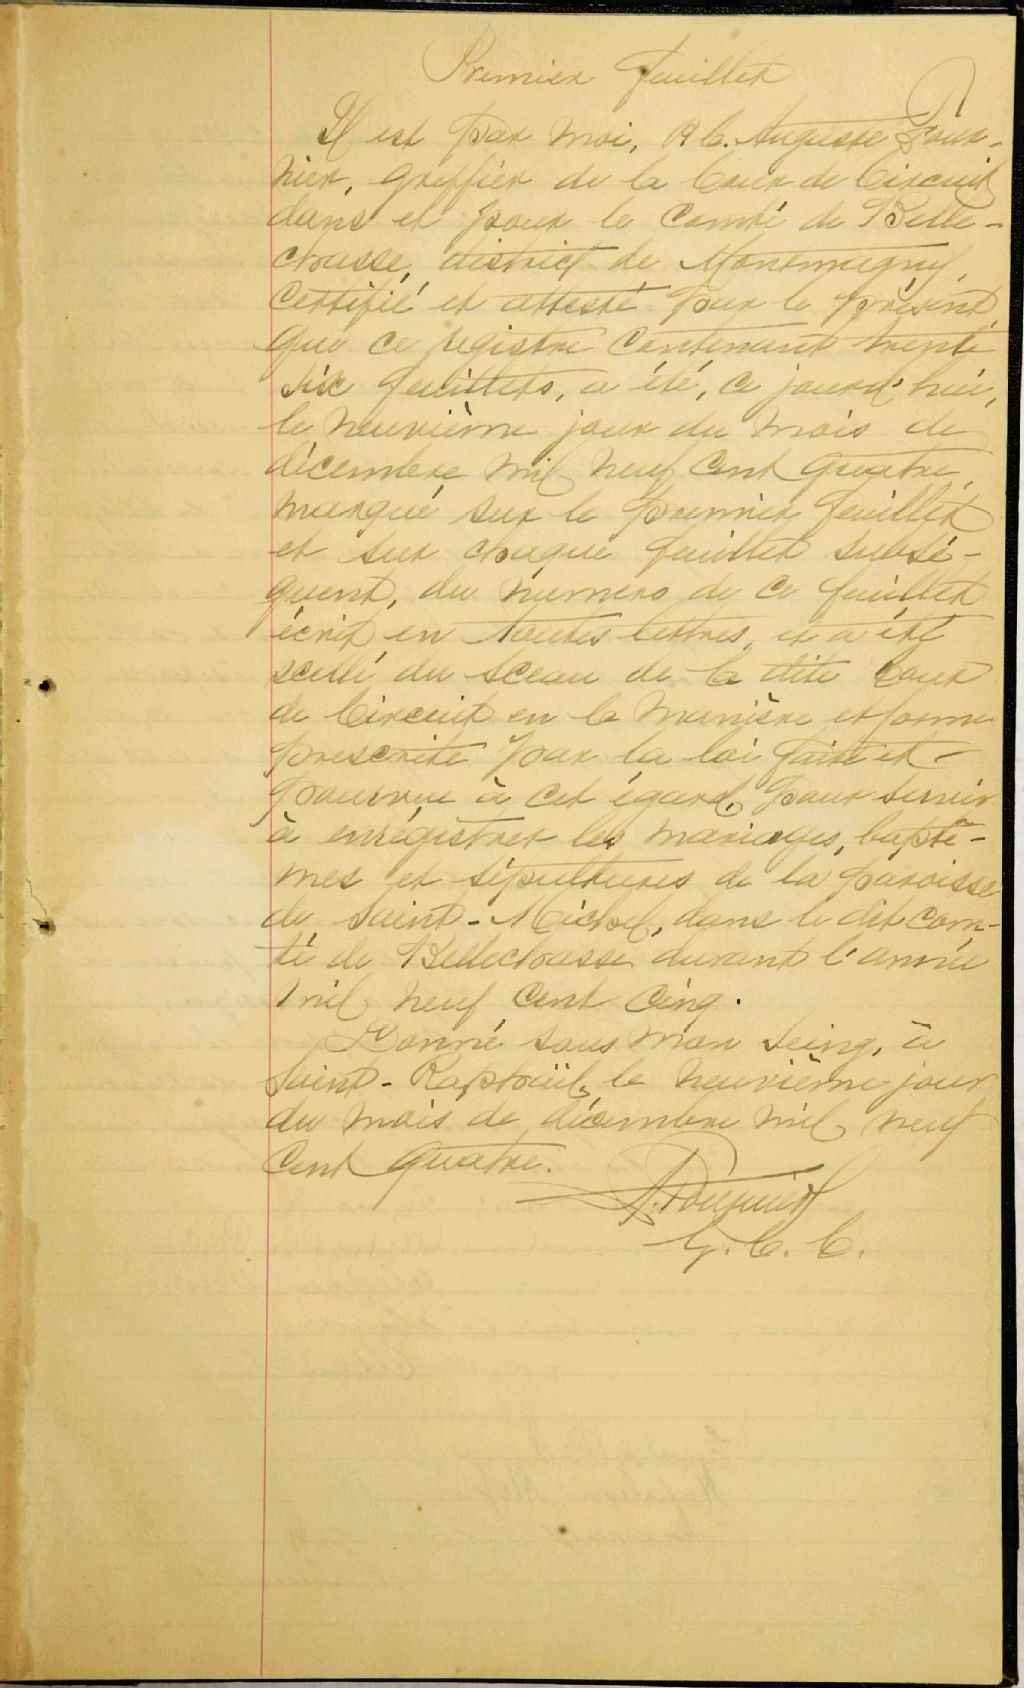 Premier feuillet
Il est par moi, R. C. Auguste Four-
nier, greffier de la Cour de Circuit
dans et pour le Comté de Belle-
chasse, district de Montmagny,
certifié et attesté par le présent,
que ce registre contenant trente
six feuillets, a été, ce jourd'hui,
le neuvième jour du mois de
décembre mil neuf cent quatre,
marqué sur le premier feuillet
et sur chaque feuillet subsé-
quent, du numéro de ce feuillet
écrit en toutes lettres, et a été
scellé du sceau de la dite Cour
de Circuit en la manière et forme
prescrite par la loi faite et
pourvue à cet égard, pour servir
à enrégistrer les mariages, baptê-
mes et sépultures de la paroisse
de Saint-Michel, dans le dit com-
té de Bellechasse durant l'année
mil neuf cent cinq.
Donné sous mon seing, à
Saint-Raphaël, le neuvième jour
du mois de décembre mil neuf
cent quatre.
A. Fournier
G. C. C.